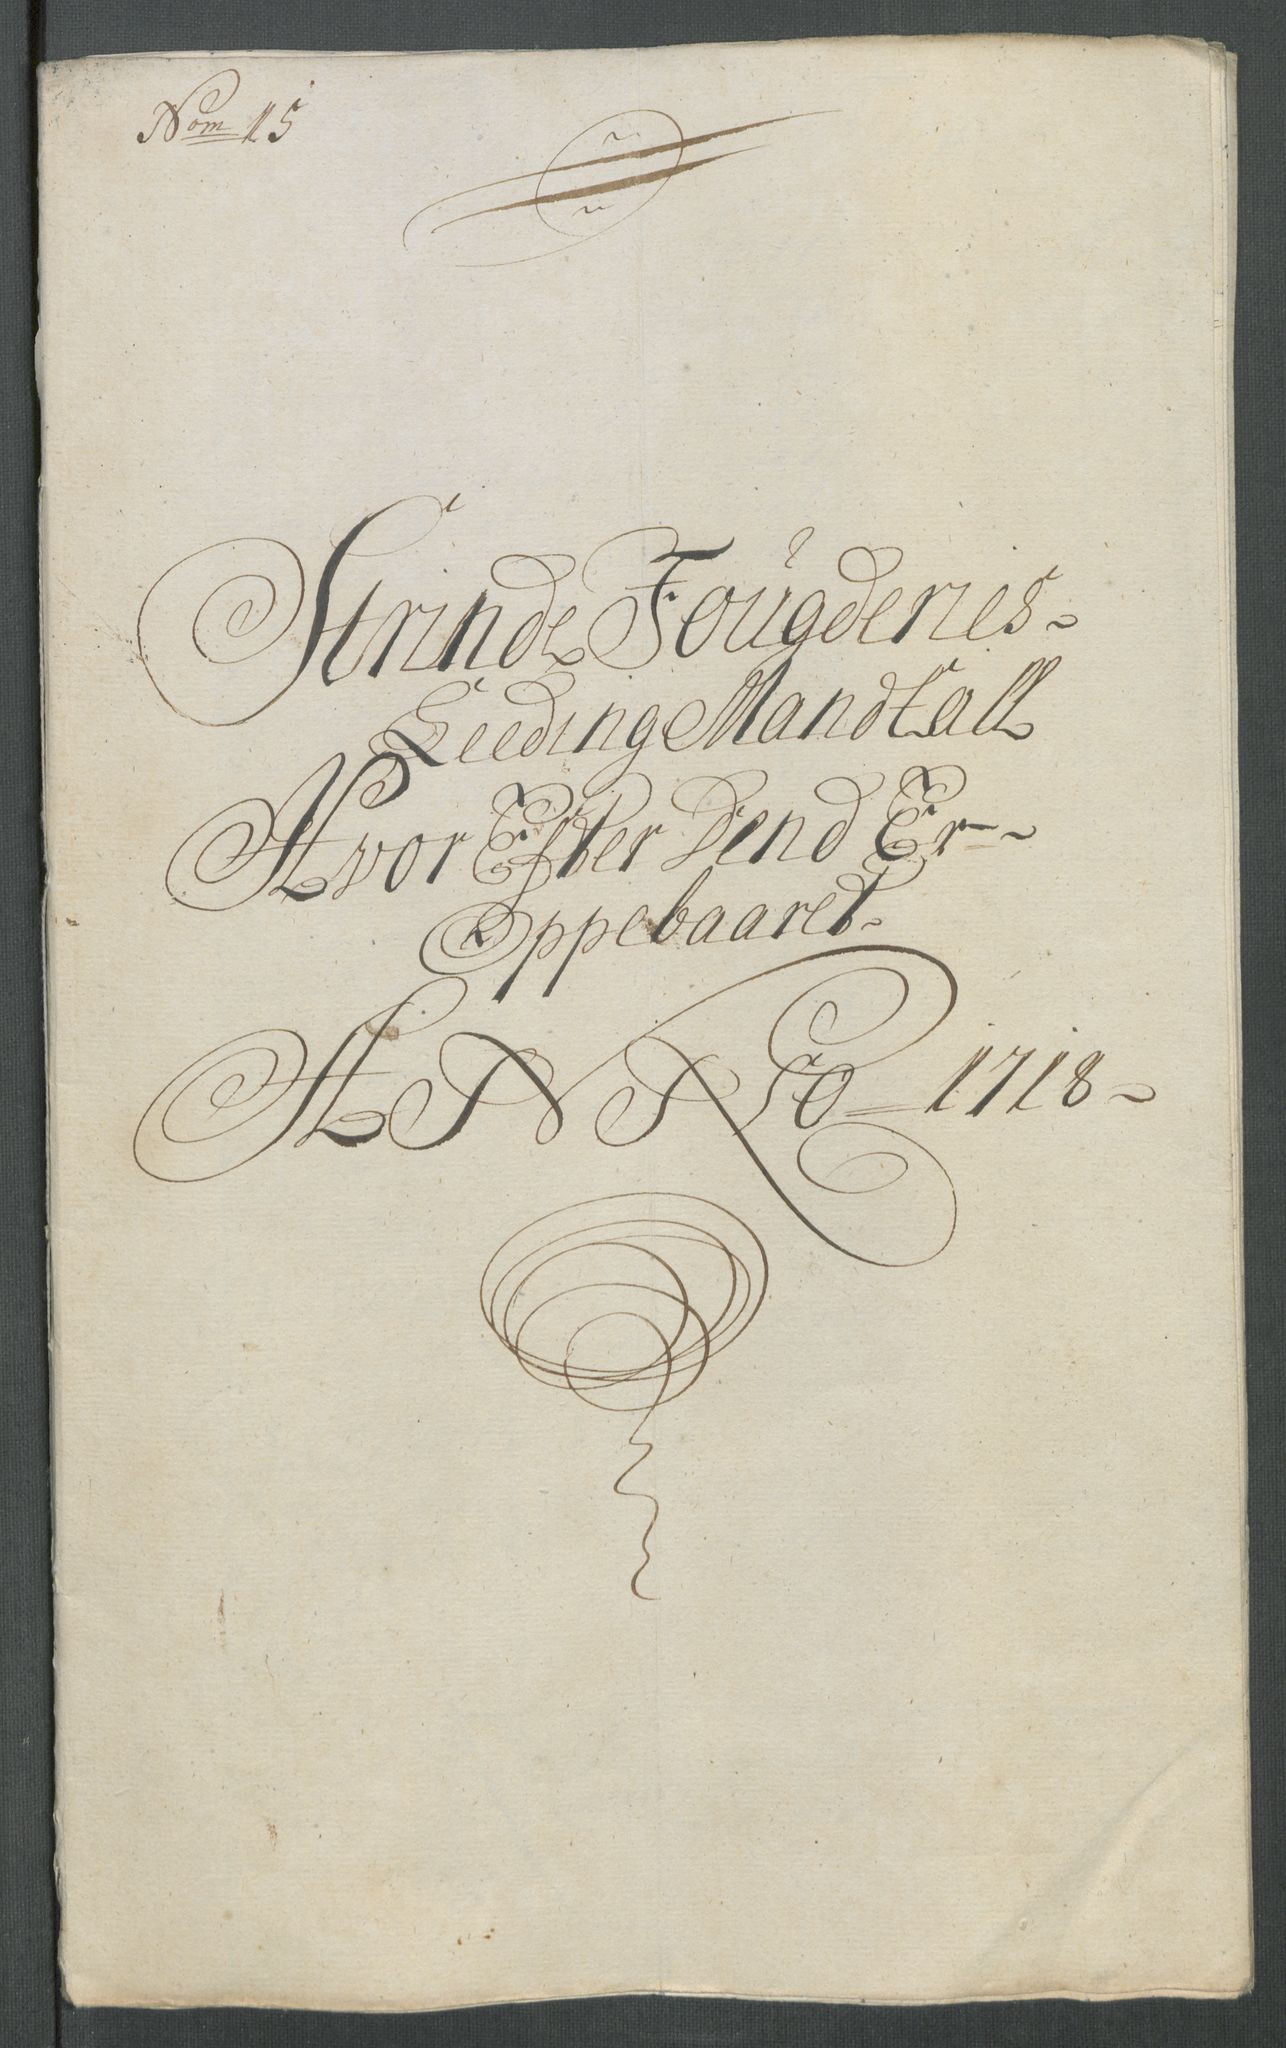 Nom 15
Strinde Foügderies
Leeding Mandtall
Hvor Efter Dend Er
Oppebaaret
ANNO 1718